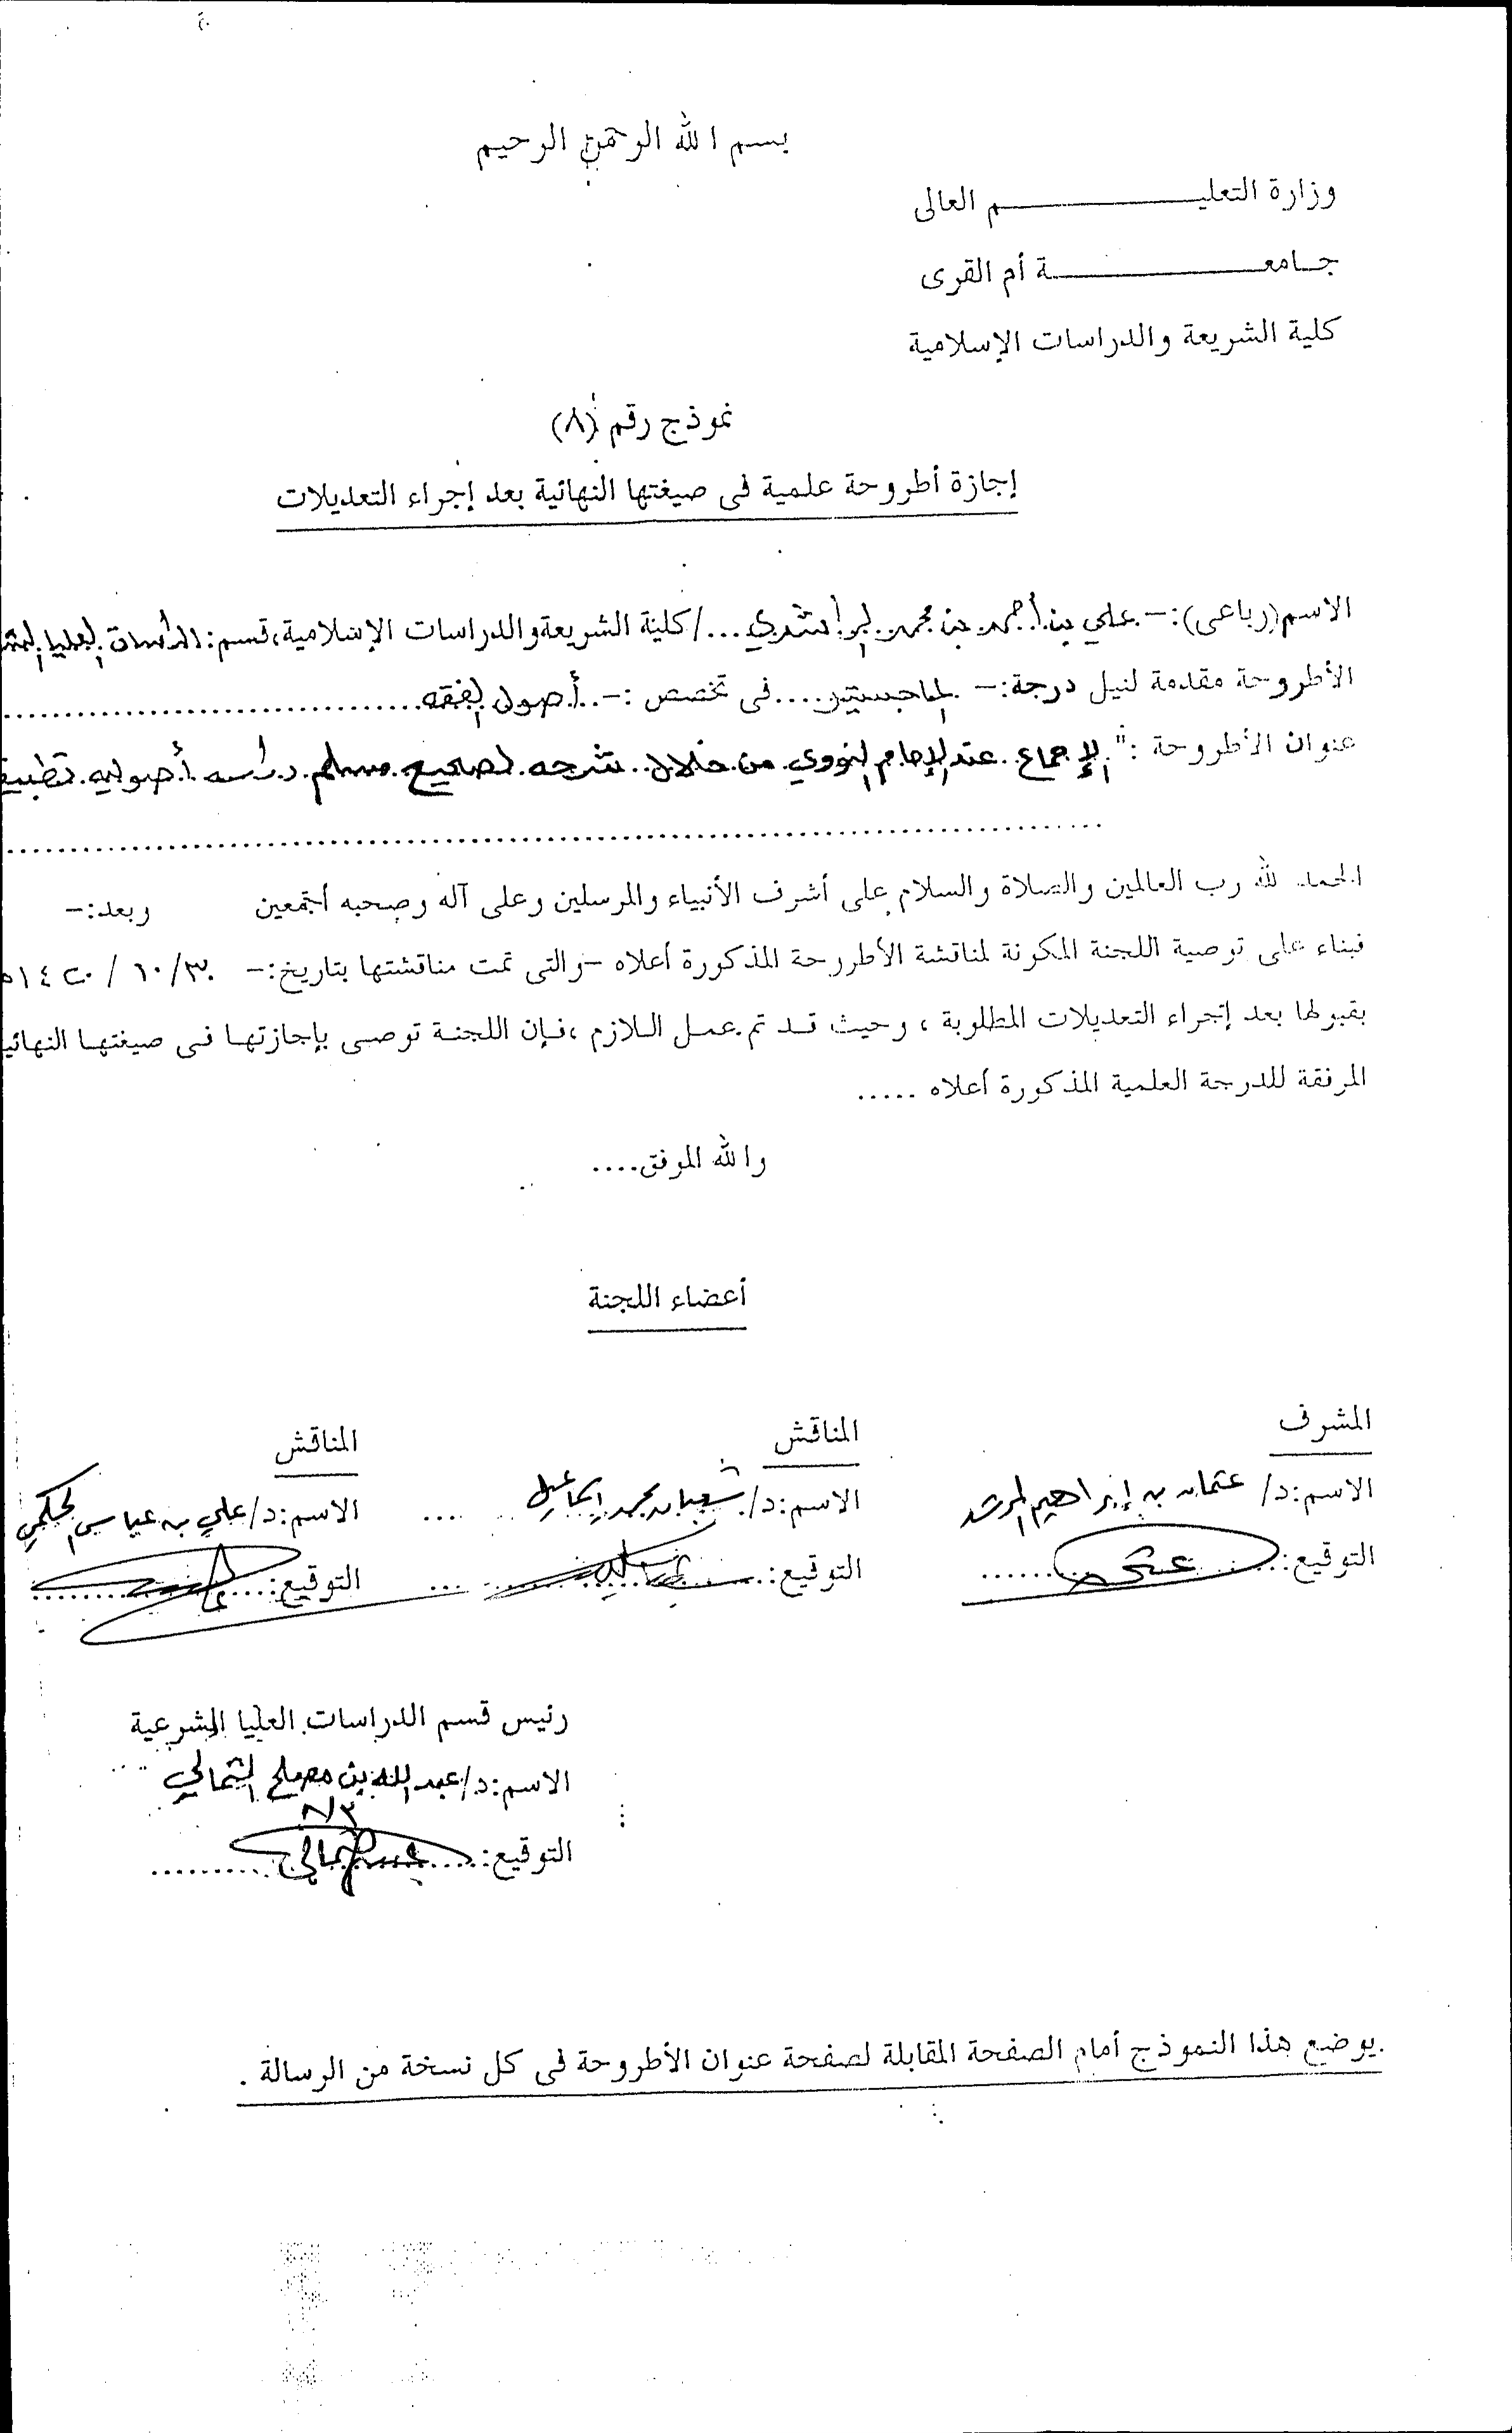 بسم الله الرحمن الرحيم
وزارة التعليـــــــــــم العالى
جـامعـــــــــــة أم القرى
كلية الشريعة والدراسات الإسلامية
نموذج رقم (٨)
إجازة أطروحة علمية فى صيغتها النهائية بعد إجراء التعديلات
الاسم(رباعى):- علي بن أحمد بن محمد الراشدي .../ كلية الشريعة والدراسات الإسلامية، قسم: الدراسات العليا
الأطروحة مقدمة لنيل درجة:- الماجستير.... فى تخصص :- أصول الفقه
عنوان الأطروحة :" الإجماع عند الإمام النووي من خلال شرحه لصحيح مسلم دراسه أصوليه
الحمد لله رب العالمين والصلاة والسلام على أشرف الأنبياء والمرسلين وعلى آله وصحبه أجمعين وبعد:-
فبناء على توصية اللجنة المكونة لمناقشة الأطروحة المذكورة أعلاه -والتى تمت مناقشتها بتاريخ:- ٣٠/ ١٠ / ١٤٢٠ه
بقبولها بعد إجراء التعديلات المطلوبة ، وحيث قد تم عمل اللازم ،فإن اللجنة توصى بإجازتها فى صيغتها
المرفقة للدرجة العلمية المذكورة أعلاه .....
والله الموفق....
أعضاء اللجنة
المشرف المناقش المناقش
الاسم:د/ عثمان بن إبراهيم المرشد الاسم:د/ شعبان محمد إسماعيل الاسم:د/ علي بن عباس الحكمي
التوقيع: التوقيع: التوقيع:
رئيس قسم الدراسات العليا الشرعية
الاسم:د/ عبد الله بن مصلح الثمالي
التوقيع:
يوضع هذا النموذج أمام الصفحة المقابلة لصفحة عنوان الأطروحة فى كل نسخة من الرسالة .